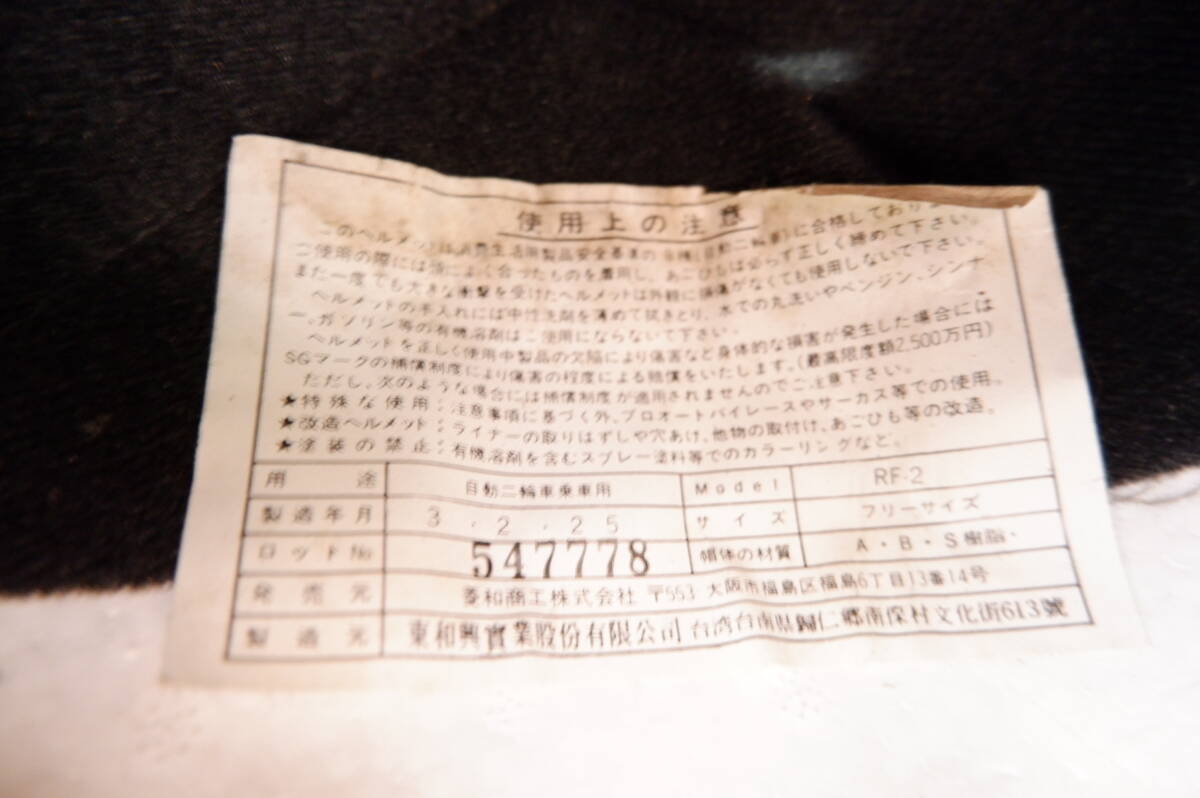 使用上の注意
このヘルメットは消費生活用製品安全基準の 種(自動二輪車)に合格しており
ご使用の際には頭によく合ったものを着用し、あごひもは必らず正しく締めて下さい。
また一度でも大きな衝撃を受けたヘルメットは外観に損傷がなくても使用しないで下さい。
ヘルメットの手入れには中性洗剤を薄めて拭きとり、水での丸洗いやベンジン、シンナ
ー、ガソリン等の有機溶剤はご使用にならないで下さい。
ヘルメットを正しく使用中製品の欠陥により傷害など身体的な損害が発生した場合には
SGマークの補償制度により傷害の程度による賠償をいたします。(最高限度額2,500万円)
ただし、次のような場合には補償制度が適用されませんのでご注意下さい。
★特殊な使用：注意事項に基づく外、プロオートバイレースやサーカス等での使用。
★改造ヘルメット：ライナーの取りはずしや穴あけ、他物の取付け、あごひも等の改造。
★塗装の禁止：有機溶剤を含むスプレー塗料等でのカラーリングなど。
用途 自動二輪車乗車用 Model RF-2
製造年月 3．2．25 サイズ フリーサイズ
ロット№ 547778 帽体の材質 A・B・S樹脂・
発売元 和商工株式会社 〒553 大阪市福島区福島6丁目13番14号
製造元 東和興實業股份有限公司 台湾台南県歸仁郷南保村文化街613號